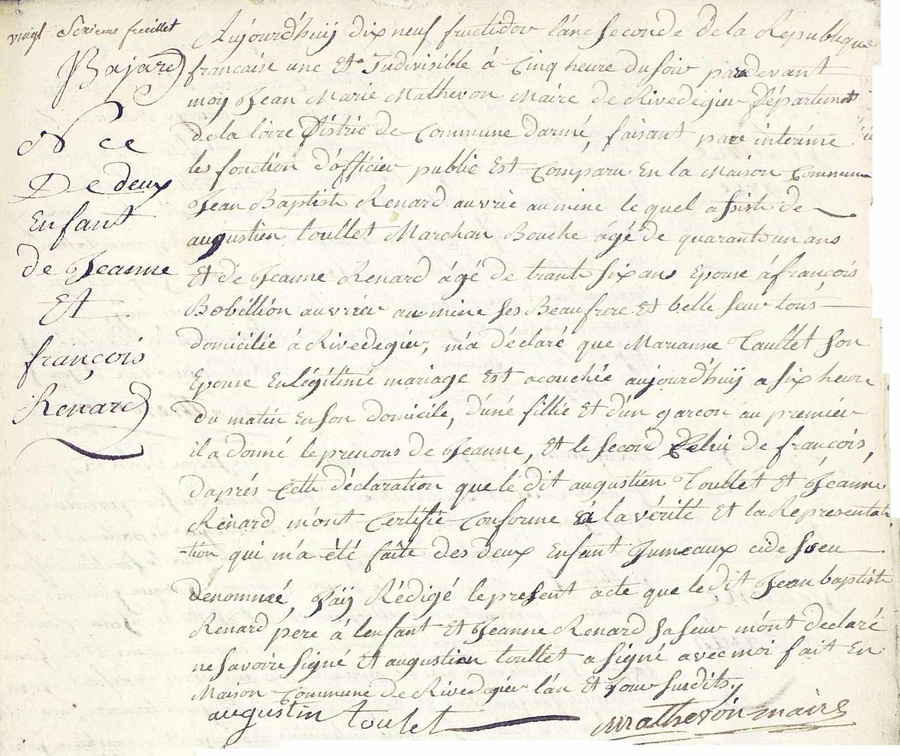 vingt Sixieme feuillet
Bajard
Nce
De deux
Enfant
de Jeanne
Et
françois
Renard
Aujourd'huij dix neuf fructidor l'ane Seconde de la Republique
francaise une Et Indivisible à Cinq heure du soir par devant
moy Jean Marie Mathevon Maire de Rivedegier Département
de la loire District de Commune darmé, faisant par interime
les fonction d'officier public Est Comparu En la Maison Commune
Jean Baptiste Renard auvrié au mine le quel assisté de
augustien toullet Marchan Bouché âgé de quarant un ans
Et de Jeanne Renard âgé de trante six ans Epouse à françois
Bobillion auvriér au mine ses Beaufrere Et belle seur tous
domicilié à Rivedegier, m'a déclaré que Marianne Taullet Son
Epouse En légitime mariage Est acouchée aujourd'huij a six heure
du matin En son domicile, d'uné fillié Et d'un garçon au premiér
il a donné le prenons de Jeanne, Et le second Celui de françois,
d'aprés Cette déclaration que le dit augustien Toullet Et Jeanne
Renard m'ont Certifié Conforme à la vérité Et la Representa
-tion qui m'a été faite des deux Enfant Jumeaux cide
denommé, J'aij Rédigé le present acte que le dit Jean baptiste
Renard pere à l'enfant Et Jeanne Renard sa seur m'ont déclaré
ne savoire signé Et augustien toullet a signé avec moi fait En
Maison Commune de Rivedegier l'an Et jour susdits,
augustin toulet
Mathevon maire